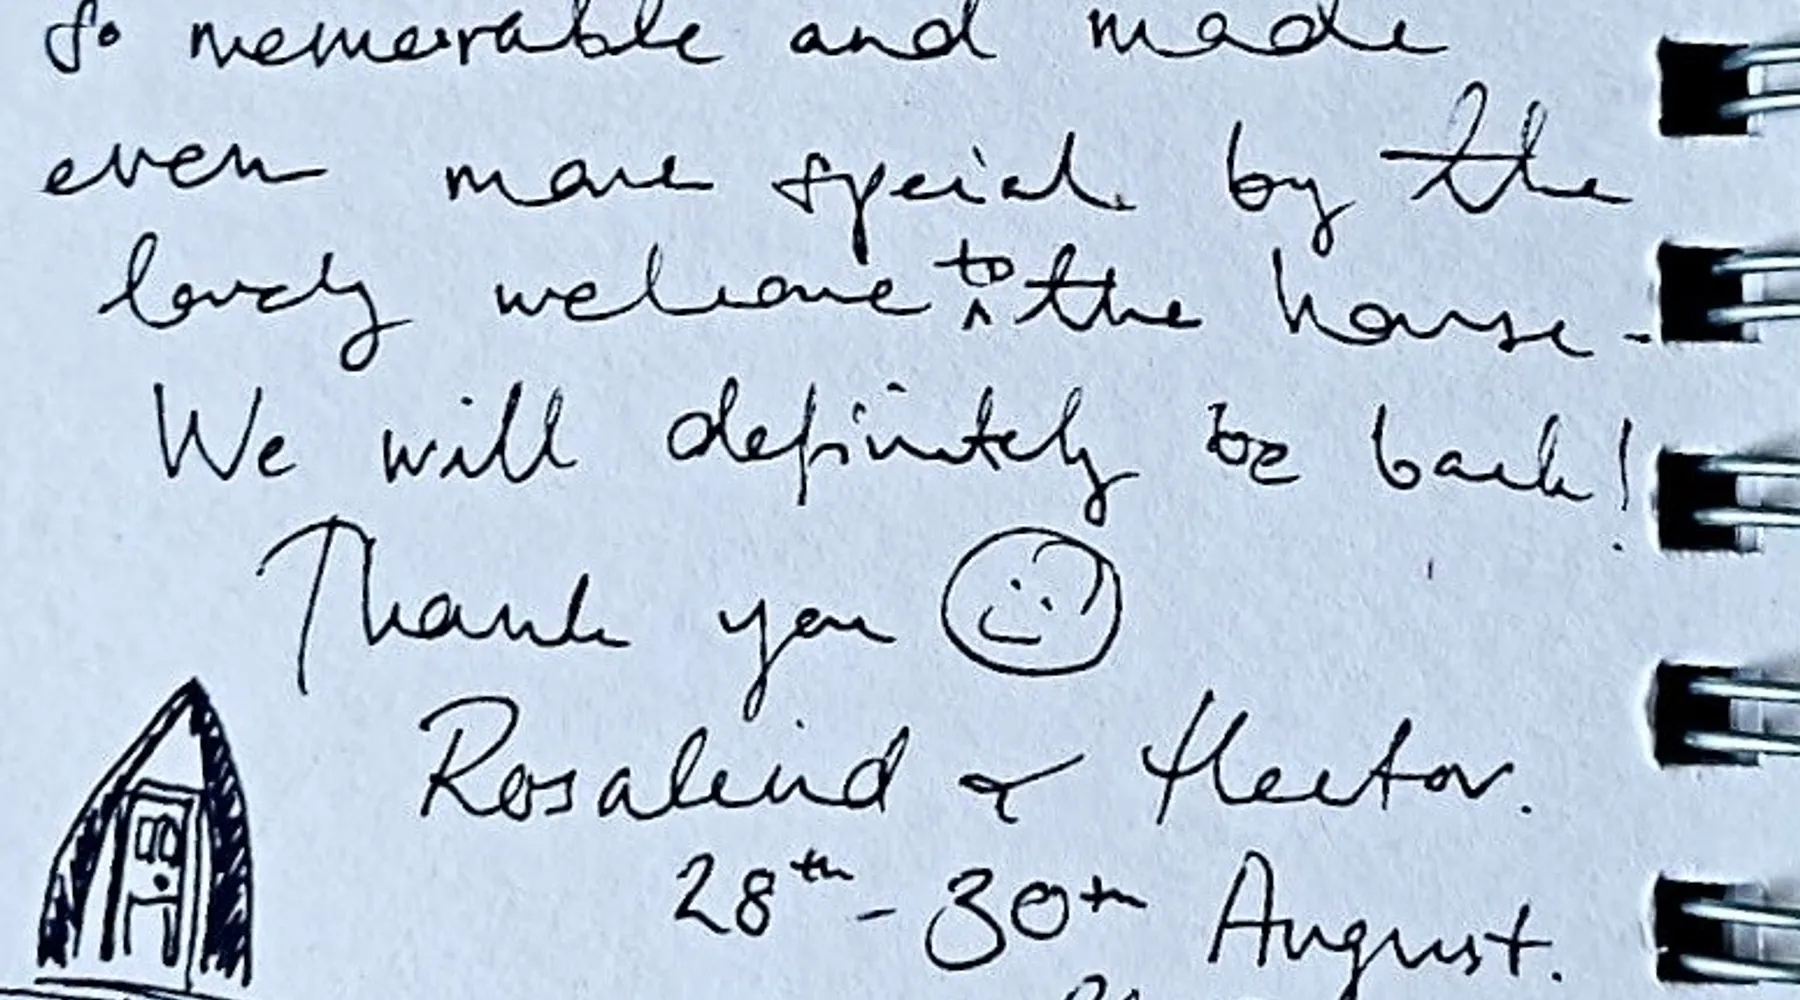 so memorable and made
even more special by the
lovely welcome to the house.
We will definitely be back!
Thank you
Rosalind & Hector.
28th - 30th August.